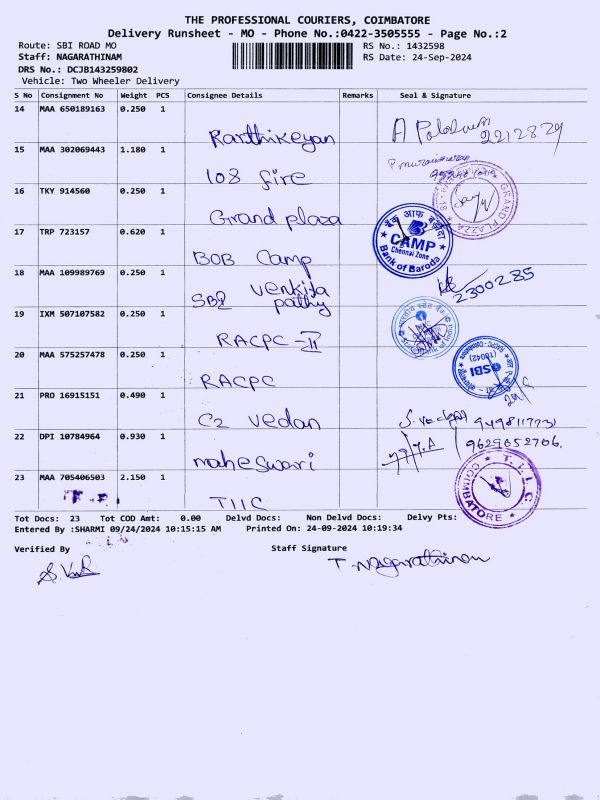 THE PROFESSIONAL COURIERS, COIMBATORE
Delivery Runsheet - MO - Phone No.:0422-3505555 - Page No.:2
Route: SBI ROAD MO RS No.: 1432598
Staff: NAGARATHINAM RS Date: 24-Sep-2024
DRS No.: DCJB143259802
Vehicle: Two Wheeler Delivery
S No Consignment No Weight PCS Consignee Details Remarks Seal & Signature
14 MAA 650189163 0.250 1
Karthikeyan 2212829
15 MAA 302069443 1.180 1
108 fire
16 TKY 914560 0.250 1
Grand plaza GRAND PLAZZA
17 TRP 723157 0.620 1
BOB Camp बैंक ऑफ बड़ौदा CAMP Chennai Zone Bank of Baroda
18 MAA 109989769 0.250 1
SBI venkita pathy 2300285
19 IXM 507107582 0.250 1
RACPC - II
20 MAA 575257478 0.250 1
RACPC SBI
21 PRO 16915151 0.490 1
C2 vedan 9498117731
22 DPI 10784964 0.930 1
maheswari 9629052706.
23 MAA 705406503 2.150 1
TIIC T.I.I.C. COIMBATORE
Tot Docs: 23 Tot COD Amt: 0.00 Delvd Docs: Non Delvd Docs: Delvy Pts:
Entered By :SHARMI 09/24/2024 10:15:15 AM Printed On: 24-09-2024 10:19:34
Verified By Staff Signature
T. Nagarathinam